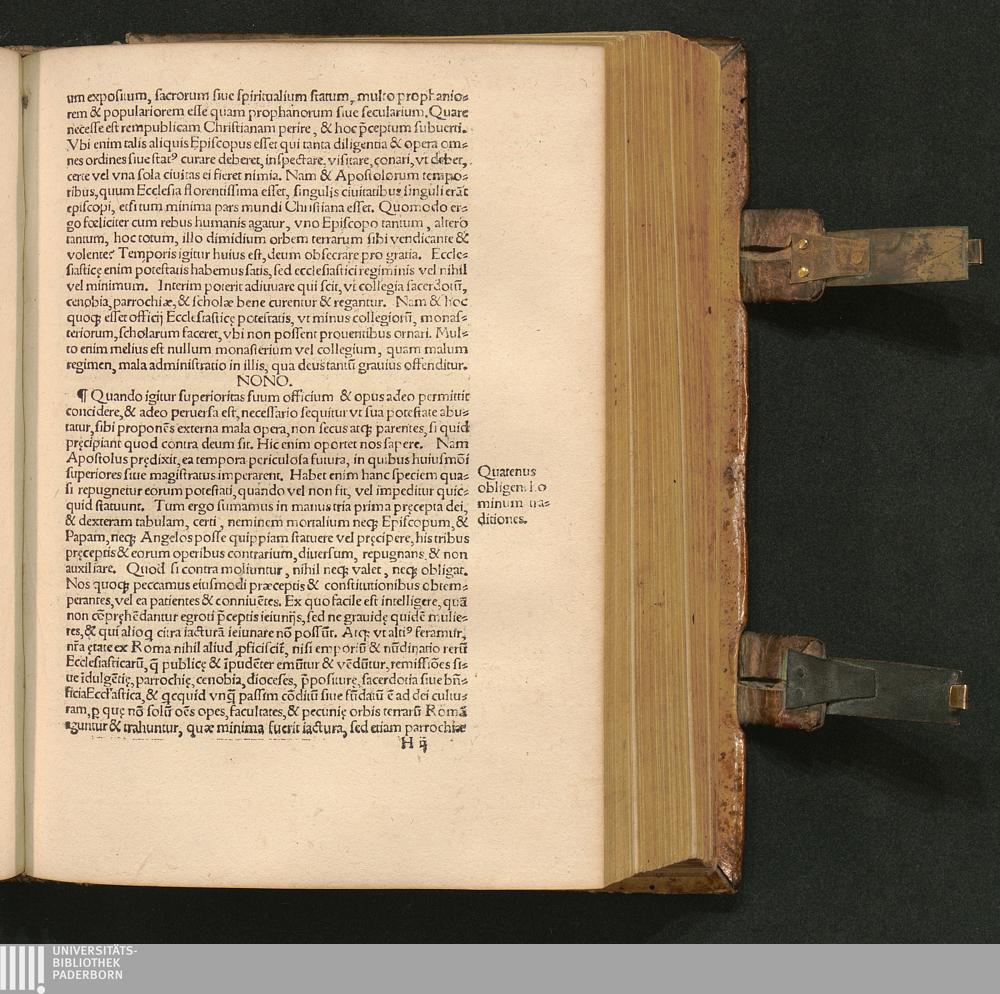 um expositum, sacrorum siue spiritualium statum, multo prophanio⸗
rem & populariorem esse quam prophanorum siue secularium. Quare
necesse est rempublicam Christianam perire, & hoc p̄ceptum subuerti.
Vbi enim talis aliquis Episcopus esset qui tanta diligentia & opera om⸗
nes ordines siue statꝰ curare deberet, inspectare, visitare, conari, vt debet,
certe vel vna sola ciuitas ei fieret nimia. Nam & Apostolorum tempo⸗
ribus, quum Ecclesia florentissima esset, singulis ciuitatibus singuli erāt
episcopi, etsi tum minima pars mundi Christiana esset. Quomodo er⸗
go fœliciter cum rebus humanis agatur, vno Episcopo tantum, altero
tantum, hoc totum, illo dimidium orbem terrarum sibi vendicante &
volente? Temporis igitur huius est, deum obsecrare pro gratia. Eccle⸗
siasticę enim potestatis habemus satis, sed ecclesiastici regiminis vel nihil
vel minimum. Interim poterit adiuuare qui scit, vt collegia sacerdotū,
cenobia, parrochiæ, & scholæ bene curentur & regantur. Nam & hoc
quoqꝫ esset officij Ecclesiasticę potestatis, vt minus collegiorū, monas⸗
teriorum, scholarum faceret, vbi non possent prouentibus ornari. Mul⸗
to enim melius est nullum monasterium vel collegium, quam malum
regimen, mala administratio in illis, qua deus tantū grauius offenditur.
NONO.
¶ Quando igitur superioritas suum officium & opus adeo permittit
concidere, & adeo peruersa est, necessario sequitur vt sua potestate abu⸗
tatur, sibi proponēs externa mala opera, non secus atqꝫ parentes, si quid
pręcipiant quod contra deum sit. Hic enim oportet nos sapere. Nam
Apostolus prędixit, ea tempora periculosa futura, in quibus huiusmōi
superiores siue magistratus imperarent. Habet enim hanc speciem qua⸗
si repugnetur eorum potestati, quando vel non fit, vel impeditur quic⸗
quid statuunt. Tum ergo sumamus in manus tria prima pręcepta dei,
& dexteram tabulam, certi, neminem mortalium neqꝫ Episcopum, &
Papam, neqꝫ Angelos posse quippiam statuere vel pręcipere, his tribus
pręceptis & eorum operibus contrarium, diuersum, repugnans & non
auxiliare. Quod si contra moliuntur, nihil neqꝫ valet, neqꝫ obligat.
Nos quoqꝫ peccamus eiusmodi præceptis & constitutionibus obtem⸗
perantes, vel ea patientes & conniuētes. Ex quo facile est intelligere, quā
non cēpręhēdantur egroti p̄ceptis ieiunijs, sed ne grauidę quidē mulie⸗
res, & qui alioqꝫ citra iacturā ieiunare nō possūt. Atqꝫ vt altiꝰ feramur,
nr̄a ętate ex Roma nihil aliud ꝓficiscit̄, nisi emporiū & nūdinatio rerū
Ecclesiasticarū, q̄ publicę & īpudēter emūtur & vēdūtur, remissiōes si⸗
ue īdulgētię, parrochię, cenobia, dioceses, p̄positurę, sacerdotia siue bn̄⸗
ficia Eccl'astica, & qͥcquid vnqͣ passim cōditū siue fūdatū ē ad dei cultu⸗
ram, ꝑ quę nō solū oēs opes, facultates, & pecunię orbis terrarū Romā
aguntur & trahuntur, quæ minima fuerit iactura, sed etiam parrochiæ
H ij
Quatenus
obligent ho
minum tra⸗
ditiones.
UNIVERSITÄTS-
BIBLIOTHEK
PADERBORN